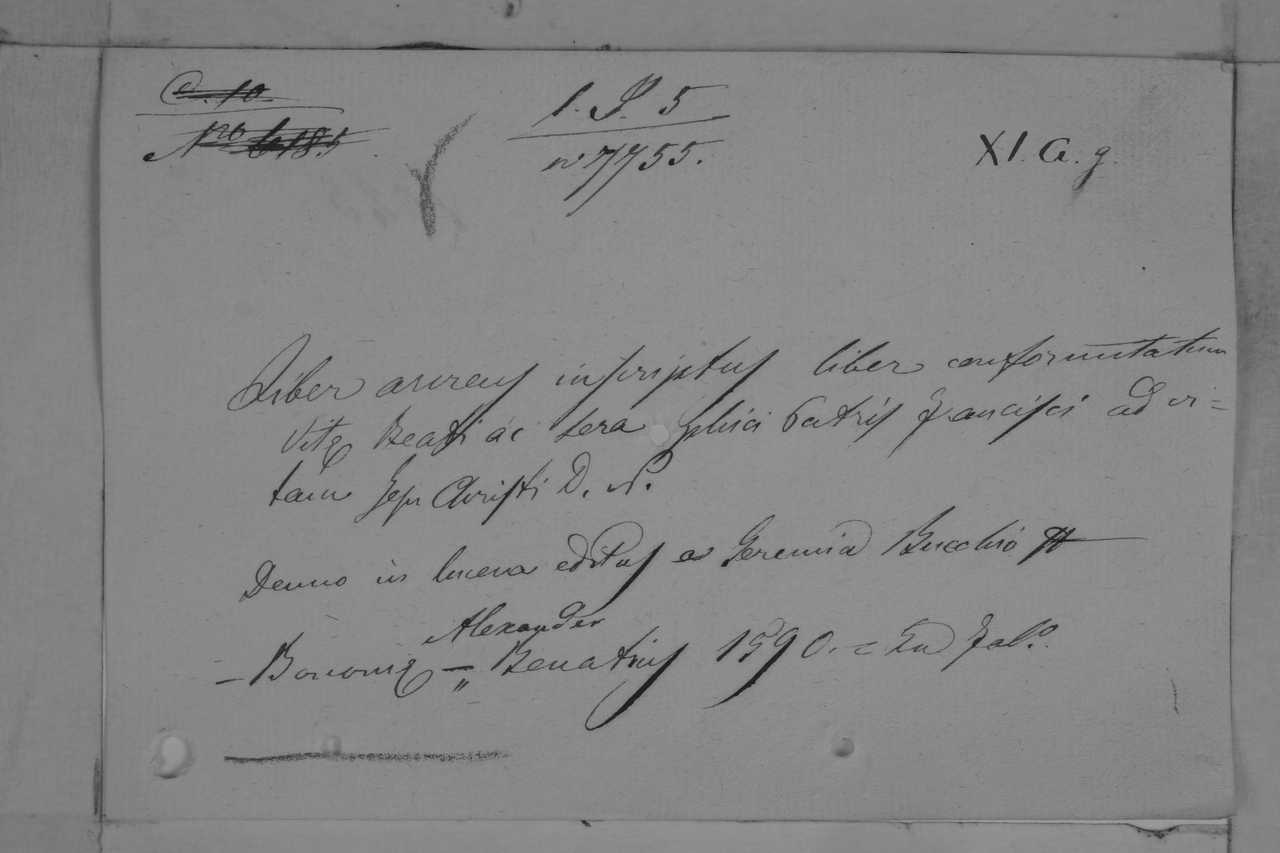 C. 10.
Nro 6185
1. S. 5
n 7755.
XI. G. g.
Liber aureus inscriptus liber conformitatum
Vitę Beati ac sera phici Patris Francisci ad vi=
tam Jesu Christi D. N.
Denuo in lucem editus a Jeremia Bucchio
Alexander
– Bononię – „ Benatius 1590. = In Fol.º